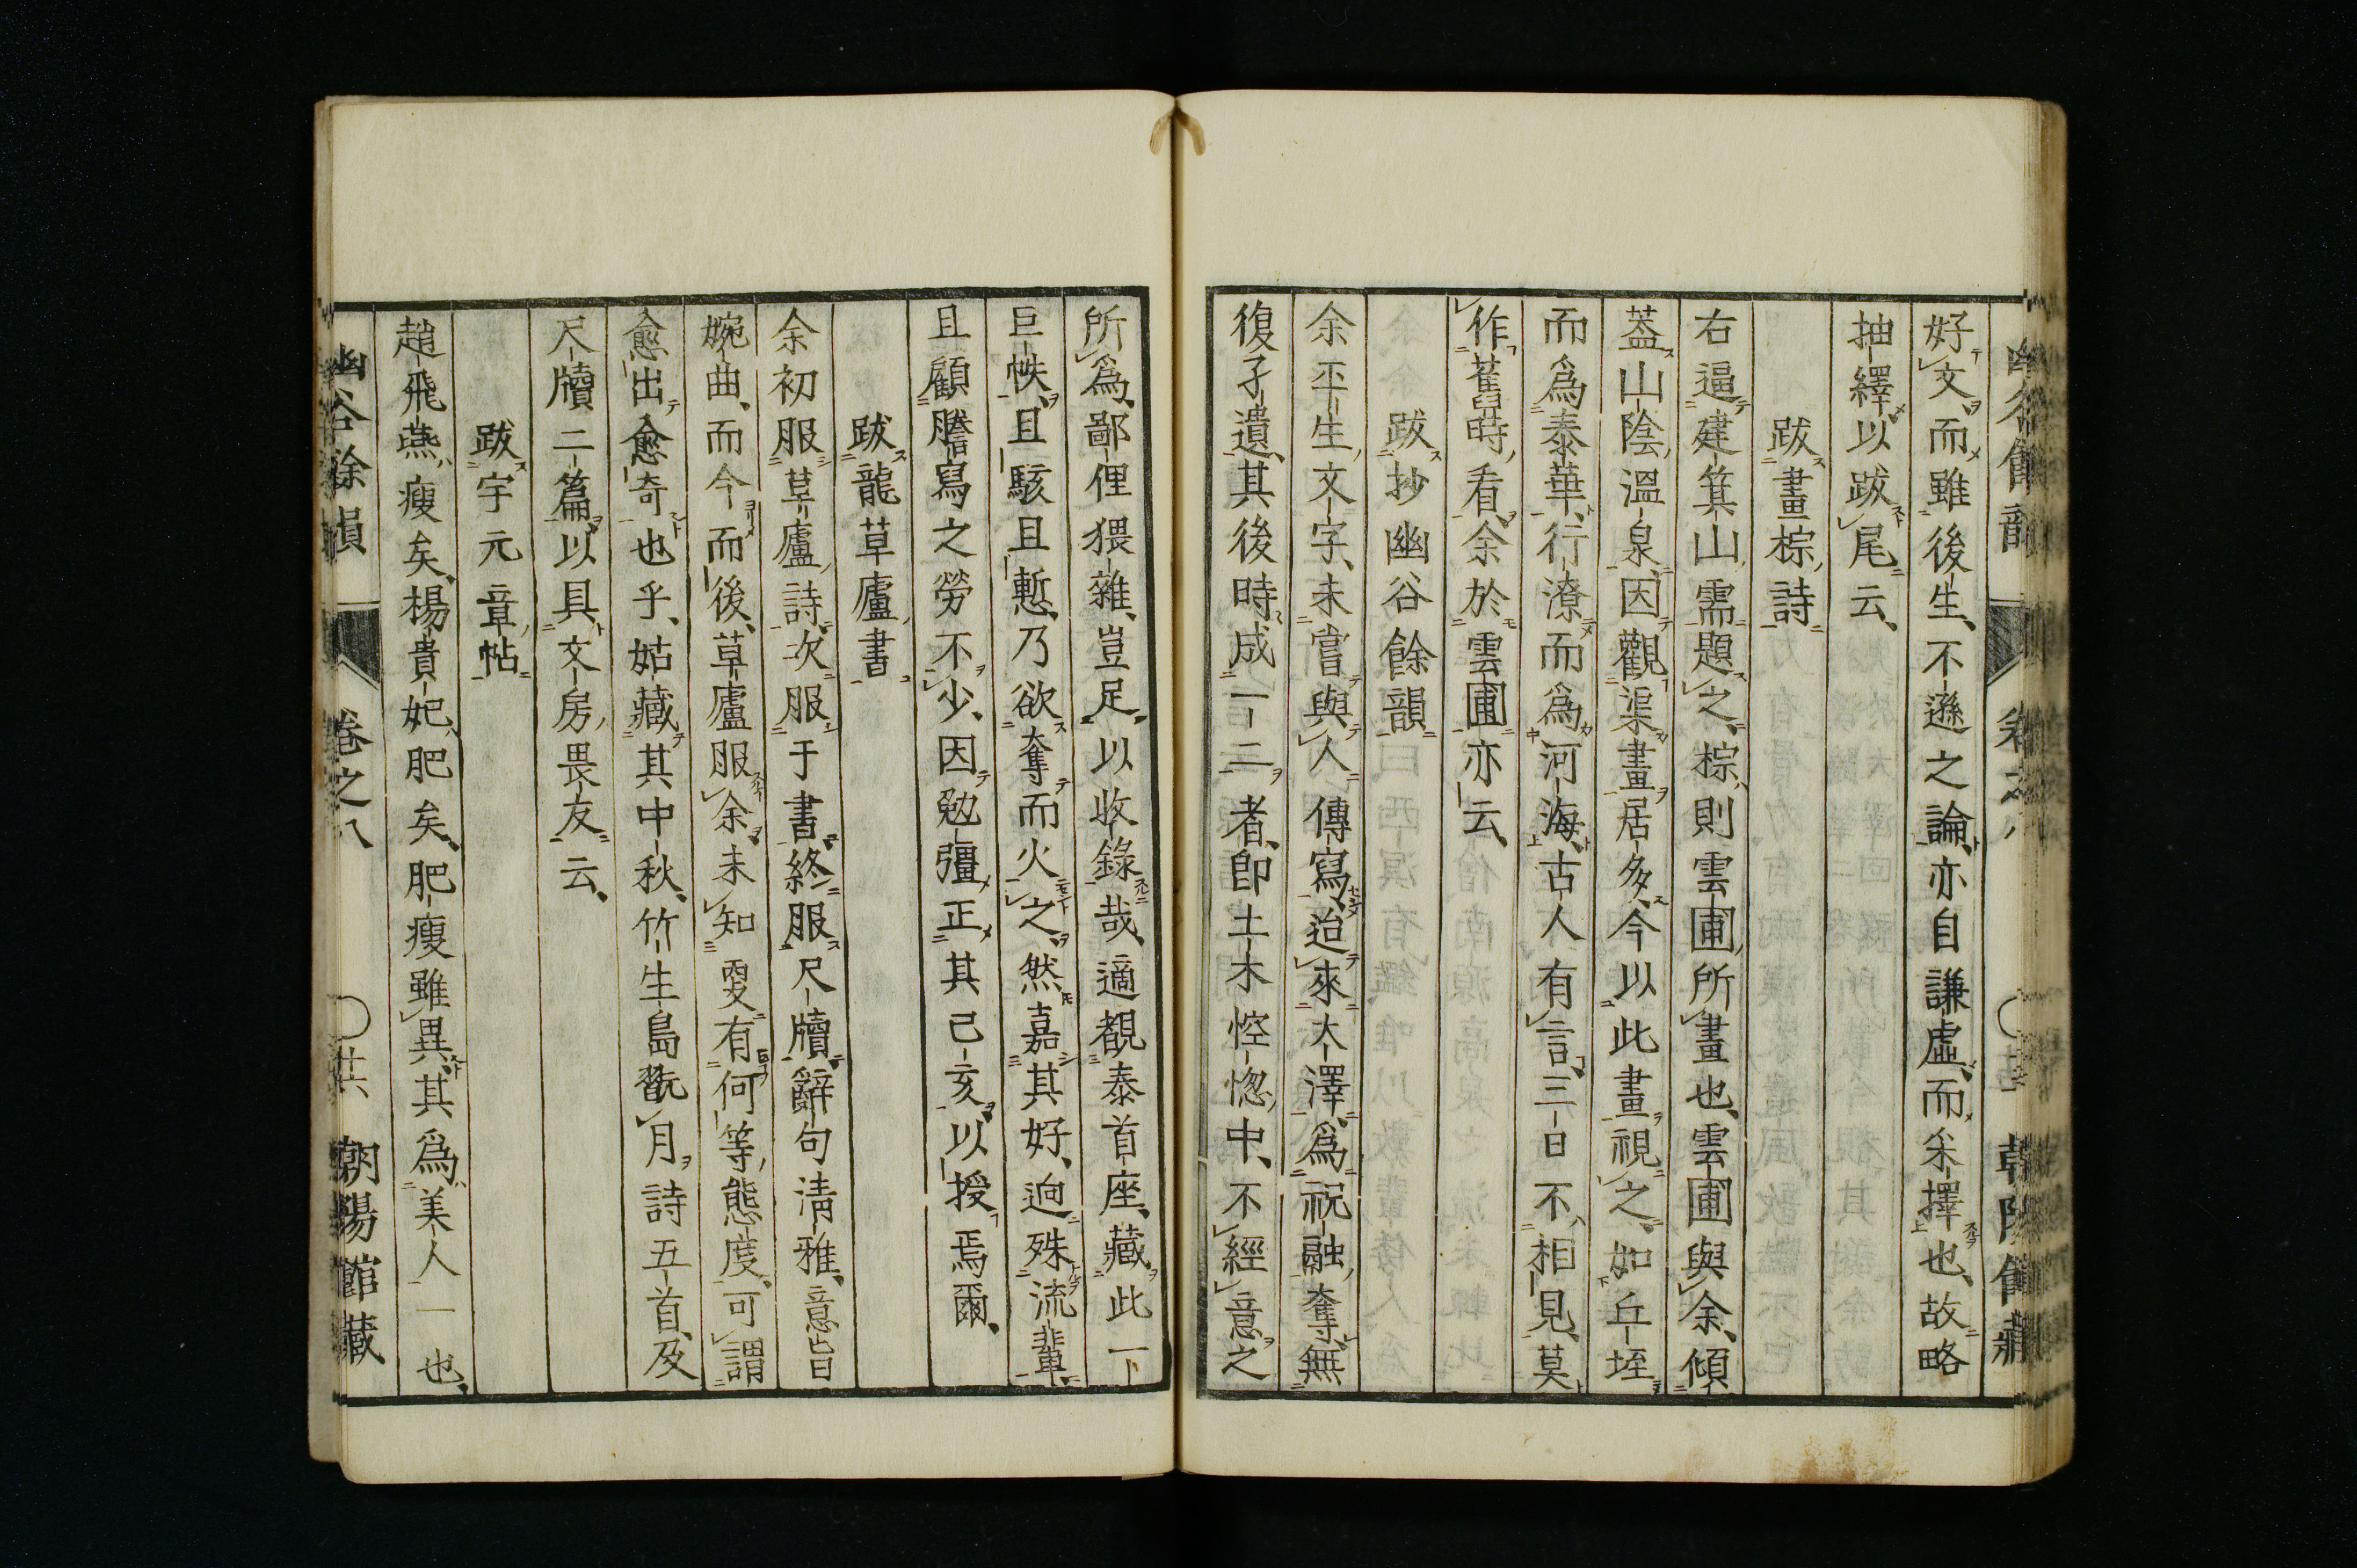 好文而雖後生不遜之論亦自謙虛而采擇也故略
抽繹以跋尾云
跋畫棕詩
右逼建箕山需題之棕則雲圃所畫也雲圃與余傾
蓋山陰溫泉因觀渠畫居多今以此畫視之如丘垤
而爲泰華行潦而爲河海古人有言三日不相見莫
作舊時看余於雲圃亦云
跋抄幽谷餘韻
余平生文字未嘗與人傳寫迨來大澤爲祝融奪無
復孑遺其後時成一二者卽土木悾惚中不經意之
所爲鄙俚猥雜豈足以收錄哉適覩泰首座藏此一
巨帙且駭且慙乃欲奪而火之然嘉其好逈殊流輩
且顧謄寫之勞不少因勉彊正其己亥以授焉爾
跋龍草廬書
余初服草廬詩次服于書終服尺牘辭句淸雅意旨
婉曲而今而後草廬服余未知更有何等態度可謂
愈出愈奇也乎姑藏其中秋竹生島翫月詩五首及
尺牘二篇以具文房畏友云
跋宇元章帖
趙飛燕瘦矣楊貴妃肥矣肥瘦雖異其爲美人一也
幽谷餘韻 卷之八 〇廿六 朝陽館藏